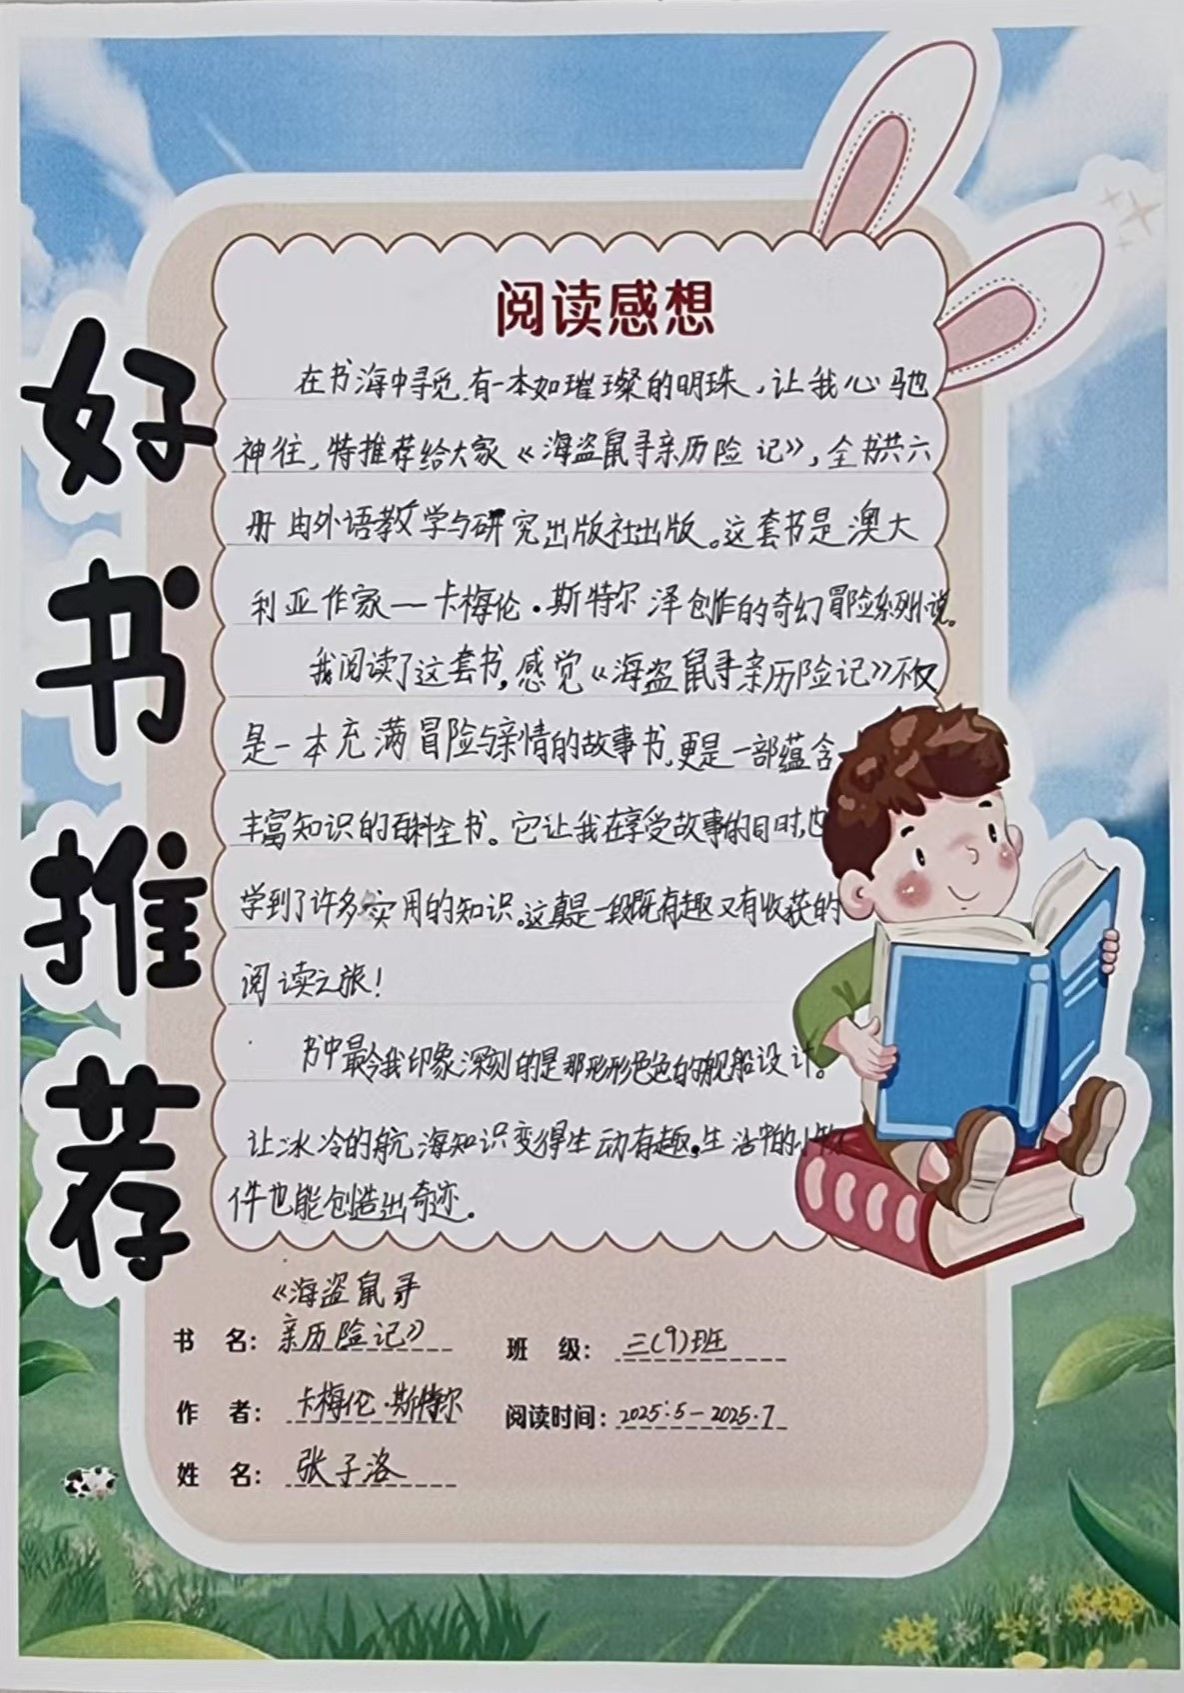 好书推荐
阅读感想
在书海中寻觅,有一本如璀璨的明珠,让我心驰
神往,特推荐给大家《海盗鼠寻亲历险记》,全书共六
册由外语教学与研究出版社出版。这套书是澳大
利亚作家——卡梅伦·斯特尔泽创作的奇幻冒险系列小说。
我阅读了这套书,感觉《海盗鼠寻亲历险记》不仅
是一本充满冒险与亲情的故事书,更是一部蕴含
丰富知识的百科全书。它让我在享受故事的同时,也
学到了许多实用的知识。这真是一段既有趣又有收获的
阅读之旅!
书中最令我印象深刻的是那形形色色的舰船设计。
让冰冷的航海知识变得生动有趣。生活中的小物
件也能创造出奇迹。
书 名: 《海盗鼠寻
亲历险记》
班 级: 三(9)班
作 者: 卡梅伦·斯特尔
阅读时间: 2025.5-2025.7
姓 名: 张子洛